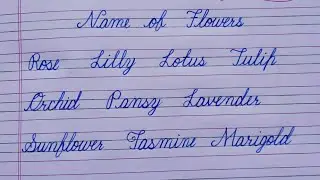 Name of Flowers
Rose Lilly Lotus Tulip
Orchid Pansy Lavender
Sunflower Jasmine Marigold